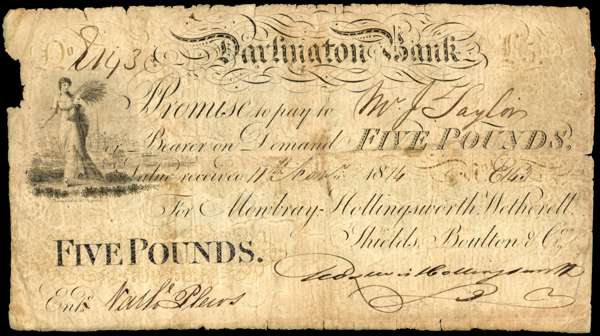 No E193 Darlington Bank £5.
Promise to pay to Mr J Taylor
or Bearer on Demand FIVE POUNDS,
Value received 1814 E193
For Mowbray Hollingsworth, Wetherell
Shields, Boulton & Co.
FIVE POUNDS. Hollingsworth
Entd. Nathl. Plews